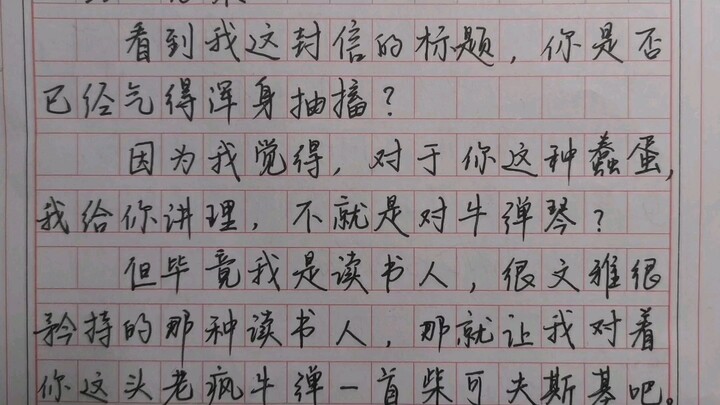 看到我这封信的标题，你是否
已经气得浑身抽搐？
因为我觉得，对于你这种蠢蛋，
我给你讲理，不就是对牛弹琴？
但毕竟我是读书人，很文雅很
矜持的那种读书人，那就让我对着
你这头老疯牛弹一首柴可夫斯基吧。